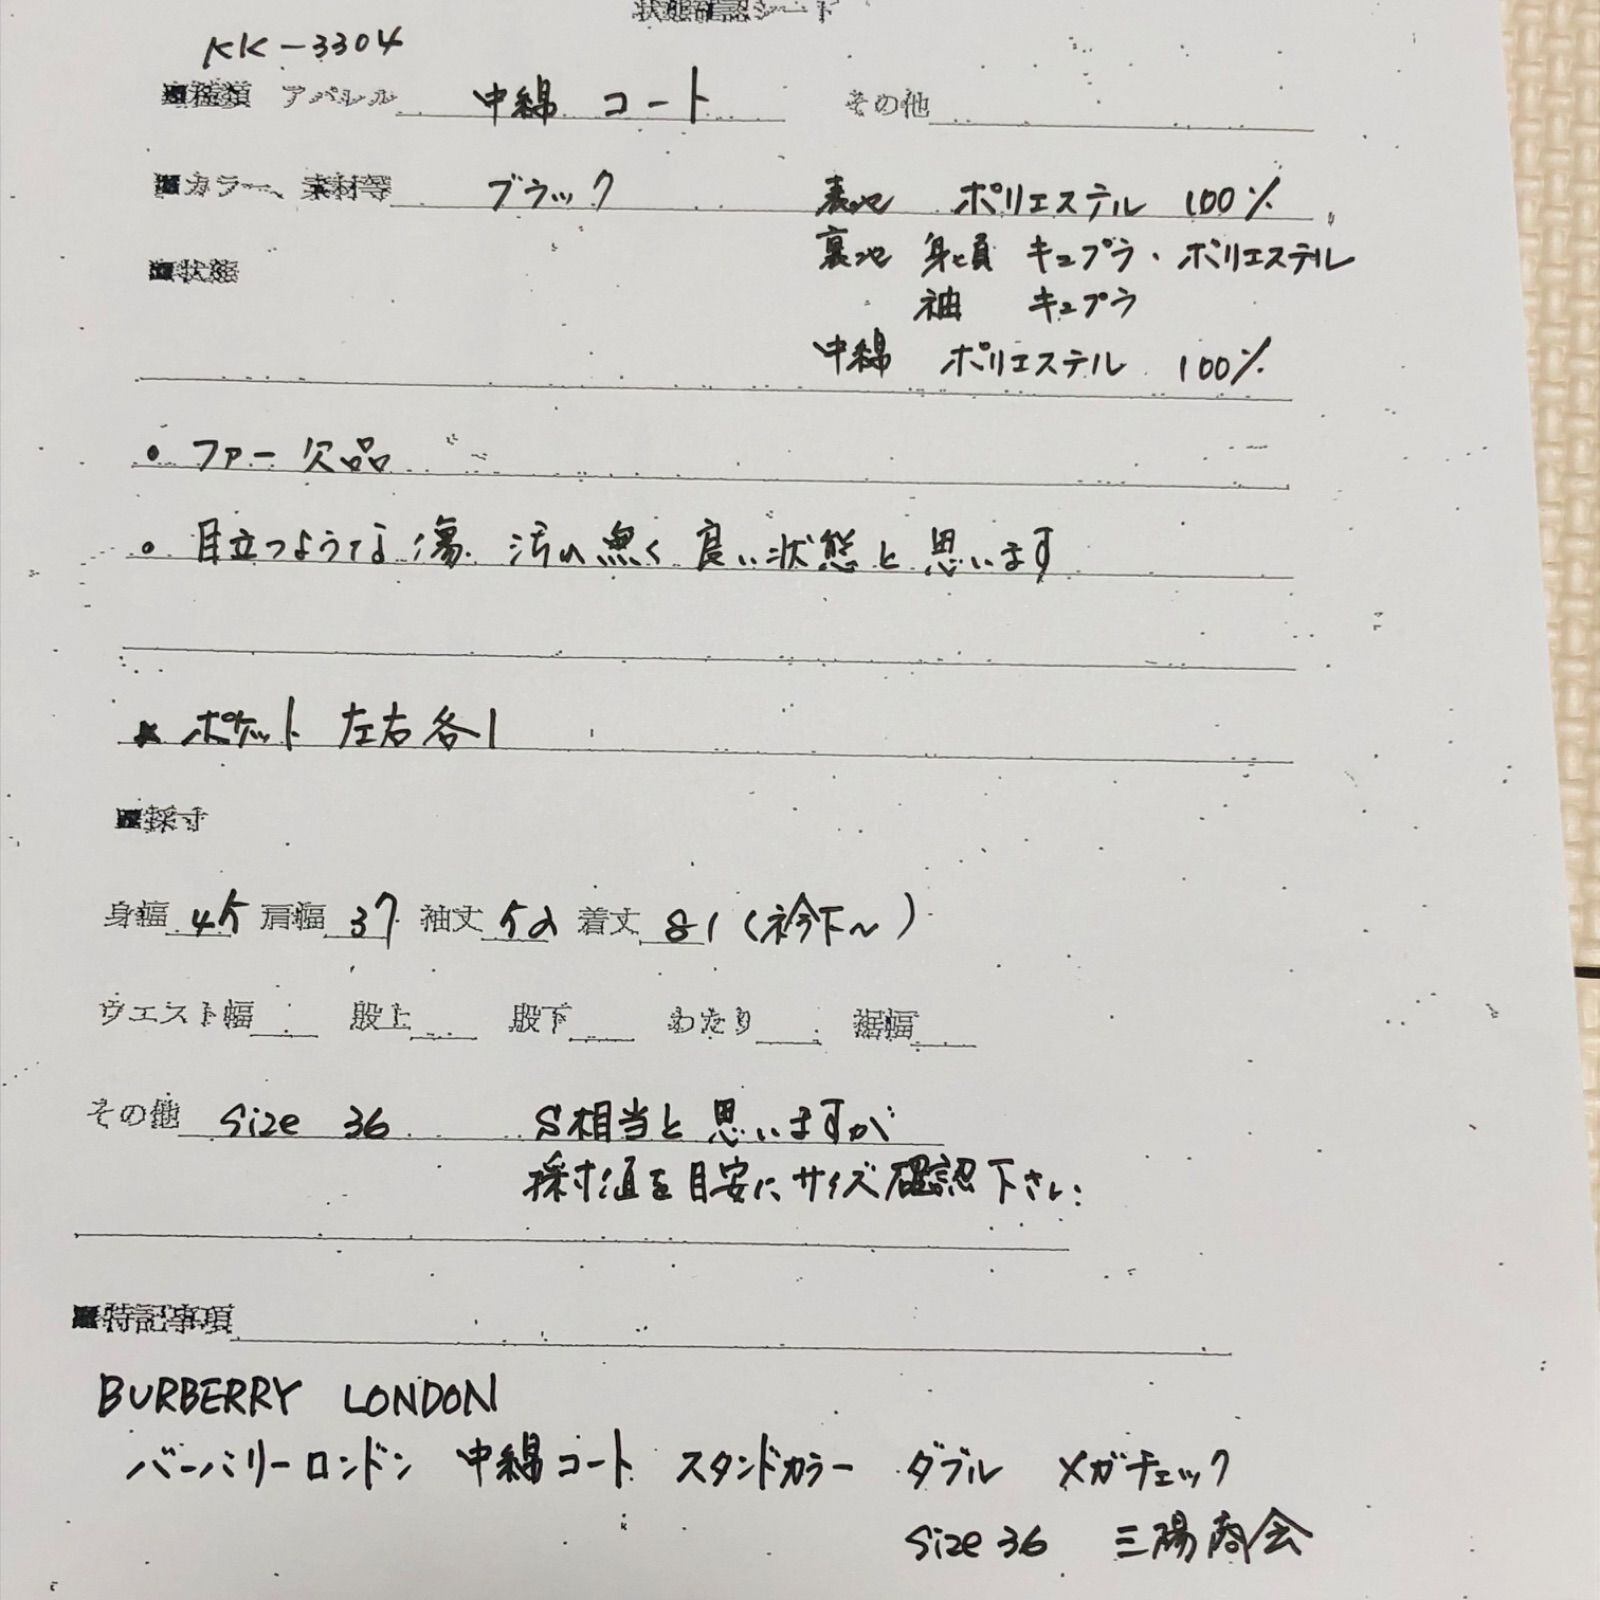 状態確認シート
KK-3304
■種類 アパレル 中綿 コート その他
■カラー、素材等 ブラック 表地 ポリエステル 100%
裏地 身頃 キュプラ・ポリエステル
■状態
袖 キュプラ
中綿 ポリエステル 100%
• ファー欠品
• 目立つような傷、汚れ無く良い状態と思います
★ ポケット 左右各1
■採寸
身幅 45 肩幅 37 袖丈 52 着丈 81 (衿下〜)
ウエスト幅 股上 股下 わたり 裾幅
その他 Size 36 S相当と思いますが
採寸値を目安にサイズ確認下さい.
■特記事項
BURBERRY LONDON
バーバリーロンドン 中綿コート スタンドカラー ダブル メガチェック
Size 36 三陽商会